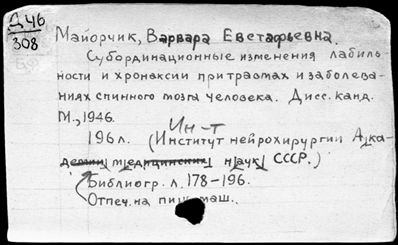 Д 46
308
Майорчик, Варвара Евстафьевна.
Субординационные изменения лабиль-
ности и хронаксии при травмах и заболева-
ниях спинного мозга человека. Дисс. канд.
М., 1946.
Ин-т
196 л. (Институт нейрохирургии Ака-
демии медицинских наук СССР.)
Библиогр. л. 178-196.
Отпеч. на пиш. маш.